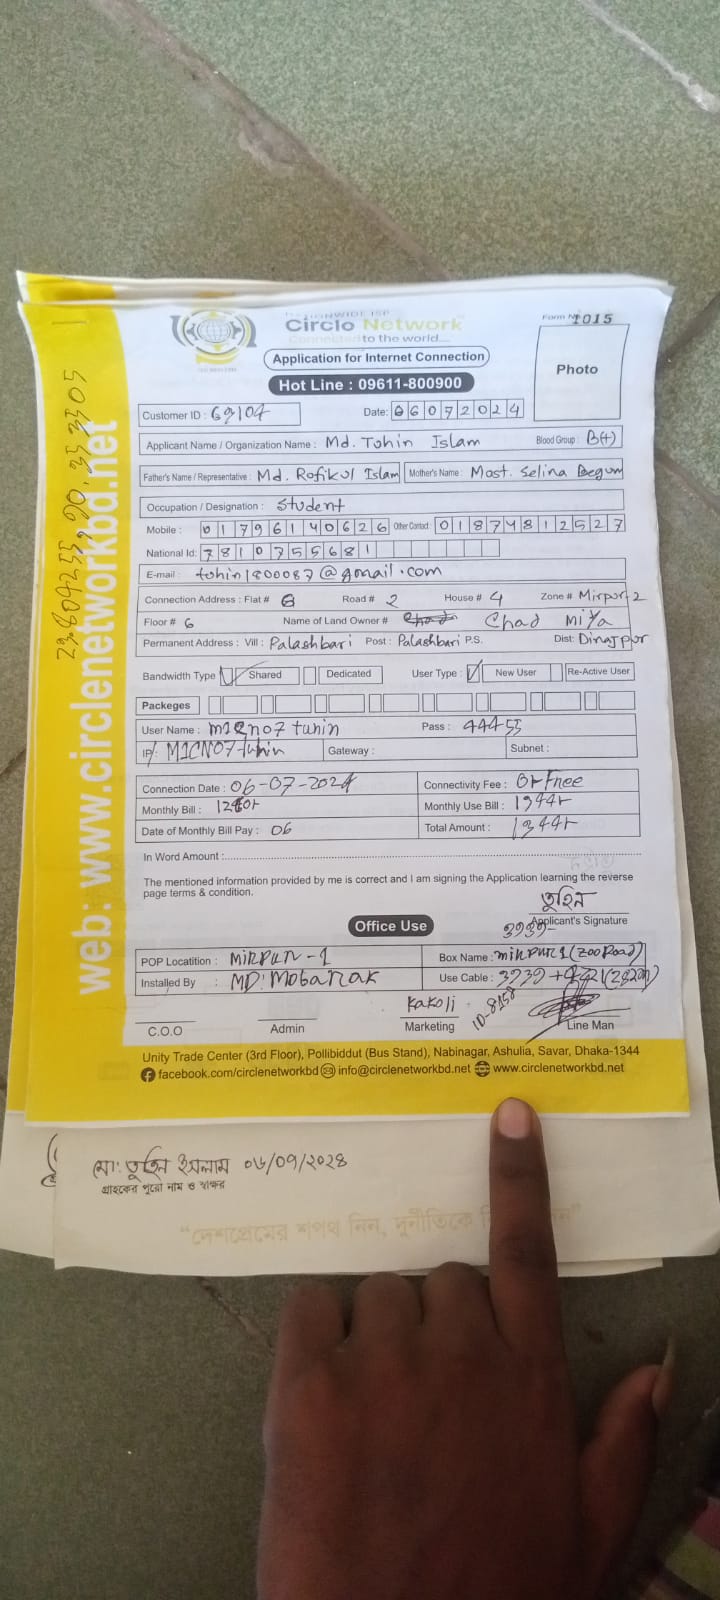 NATIONWIDE ISP
Circle Network
Connected to the world....
Form № 1015
Application for Internet Connection
Hot Line : 09611-800900
Photo
Customer ID : 69104
Date: 06072024
Applicant Name / Organization Name : Md. Tohin Islam Blood Group : B(+)
Father's Name / Representative : Md. Rofikul Islam Mother's Name : Most. Selina Begum
Occupation / Designation : Student
Mobile : 01796140626 Other Contact : 01874812527
National Id: 7810755681
E-mail : tohin1800087@gmail.com
Connection Address : Flat # 6 Road # 2 House # 4 Zone # Mirpur 2
Floor # 6 Name of Land Owner # Chad Miya
Permanent Address : Vill : Palashbari Post : Palashbari P.S. Dist: Dinajpur
Bandwidth Type Shared Dedicated User Type : New User Re-Active User
Packeges
User Name : m1cno7 tuhin Pass : 44455
IP/: M1CNO7 tuhin Gateway : Subnet :
Connection Date : 06-07-2024 Connectivity Fee : Free
Monthly Bill : Monthly Use Bill : 1344
Date of Monthly Bill Pay : 06 Total Amount : 1344
In Word Amount :
The mentioned information provided by me is correct and I am signing the Application learning the reverse
page terms & condition.
তুহিন
Applicant's Signature
Office Use
3939-
POP Locatition : MIRPUR - 1 Box Name : mirpur 1 (Zoo Road)
Installed By : MD: Mobarak Use Cable : 3939 +
Kakoli
ID-8158
C.O.O Admin Marketing Line Man
Unity Trade Center (3rd Floor), Pollibiddut (Bus Stand), Nabinagar, Ashulia, Savar, Dhaka-1344
facebook.com/circlenetworkbd info@circlenetworkbd.net www.circlenetworkbd.net
web: www.circlenetworkbd.net
23.809255, 90.353505
মো: তুহিন ইসলাম ০৬/০৭/২০২৪
গ্রাহকের পুরো নাম ও স্বাক্ষর
“দেশপ্রেমের শপথ নিন, দুর্নীতিকে